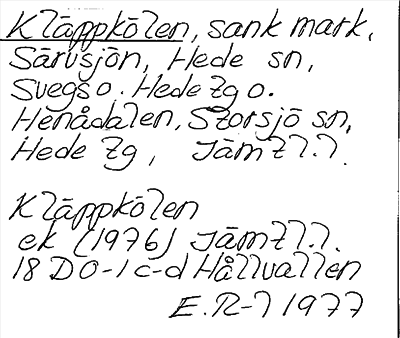 Kläppkölen, sank mark,
Särvsjön, Hede sn,
Svegs o. Hede tg o.
Henådalen, Storsjö sn,
Hede tg, Jämtl.l.
Kläppkölen
ek (1976) Jämtl.l.
18 D 0-1 c-d Hållvallen
E.R-l 1977